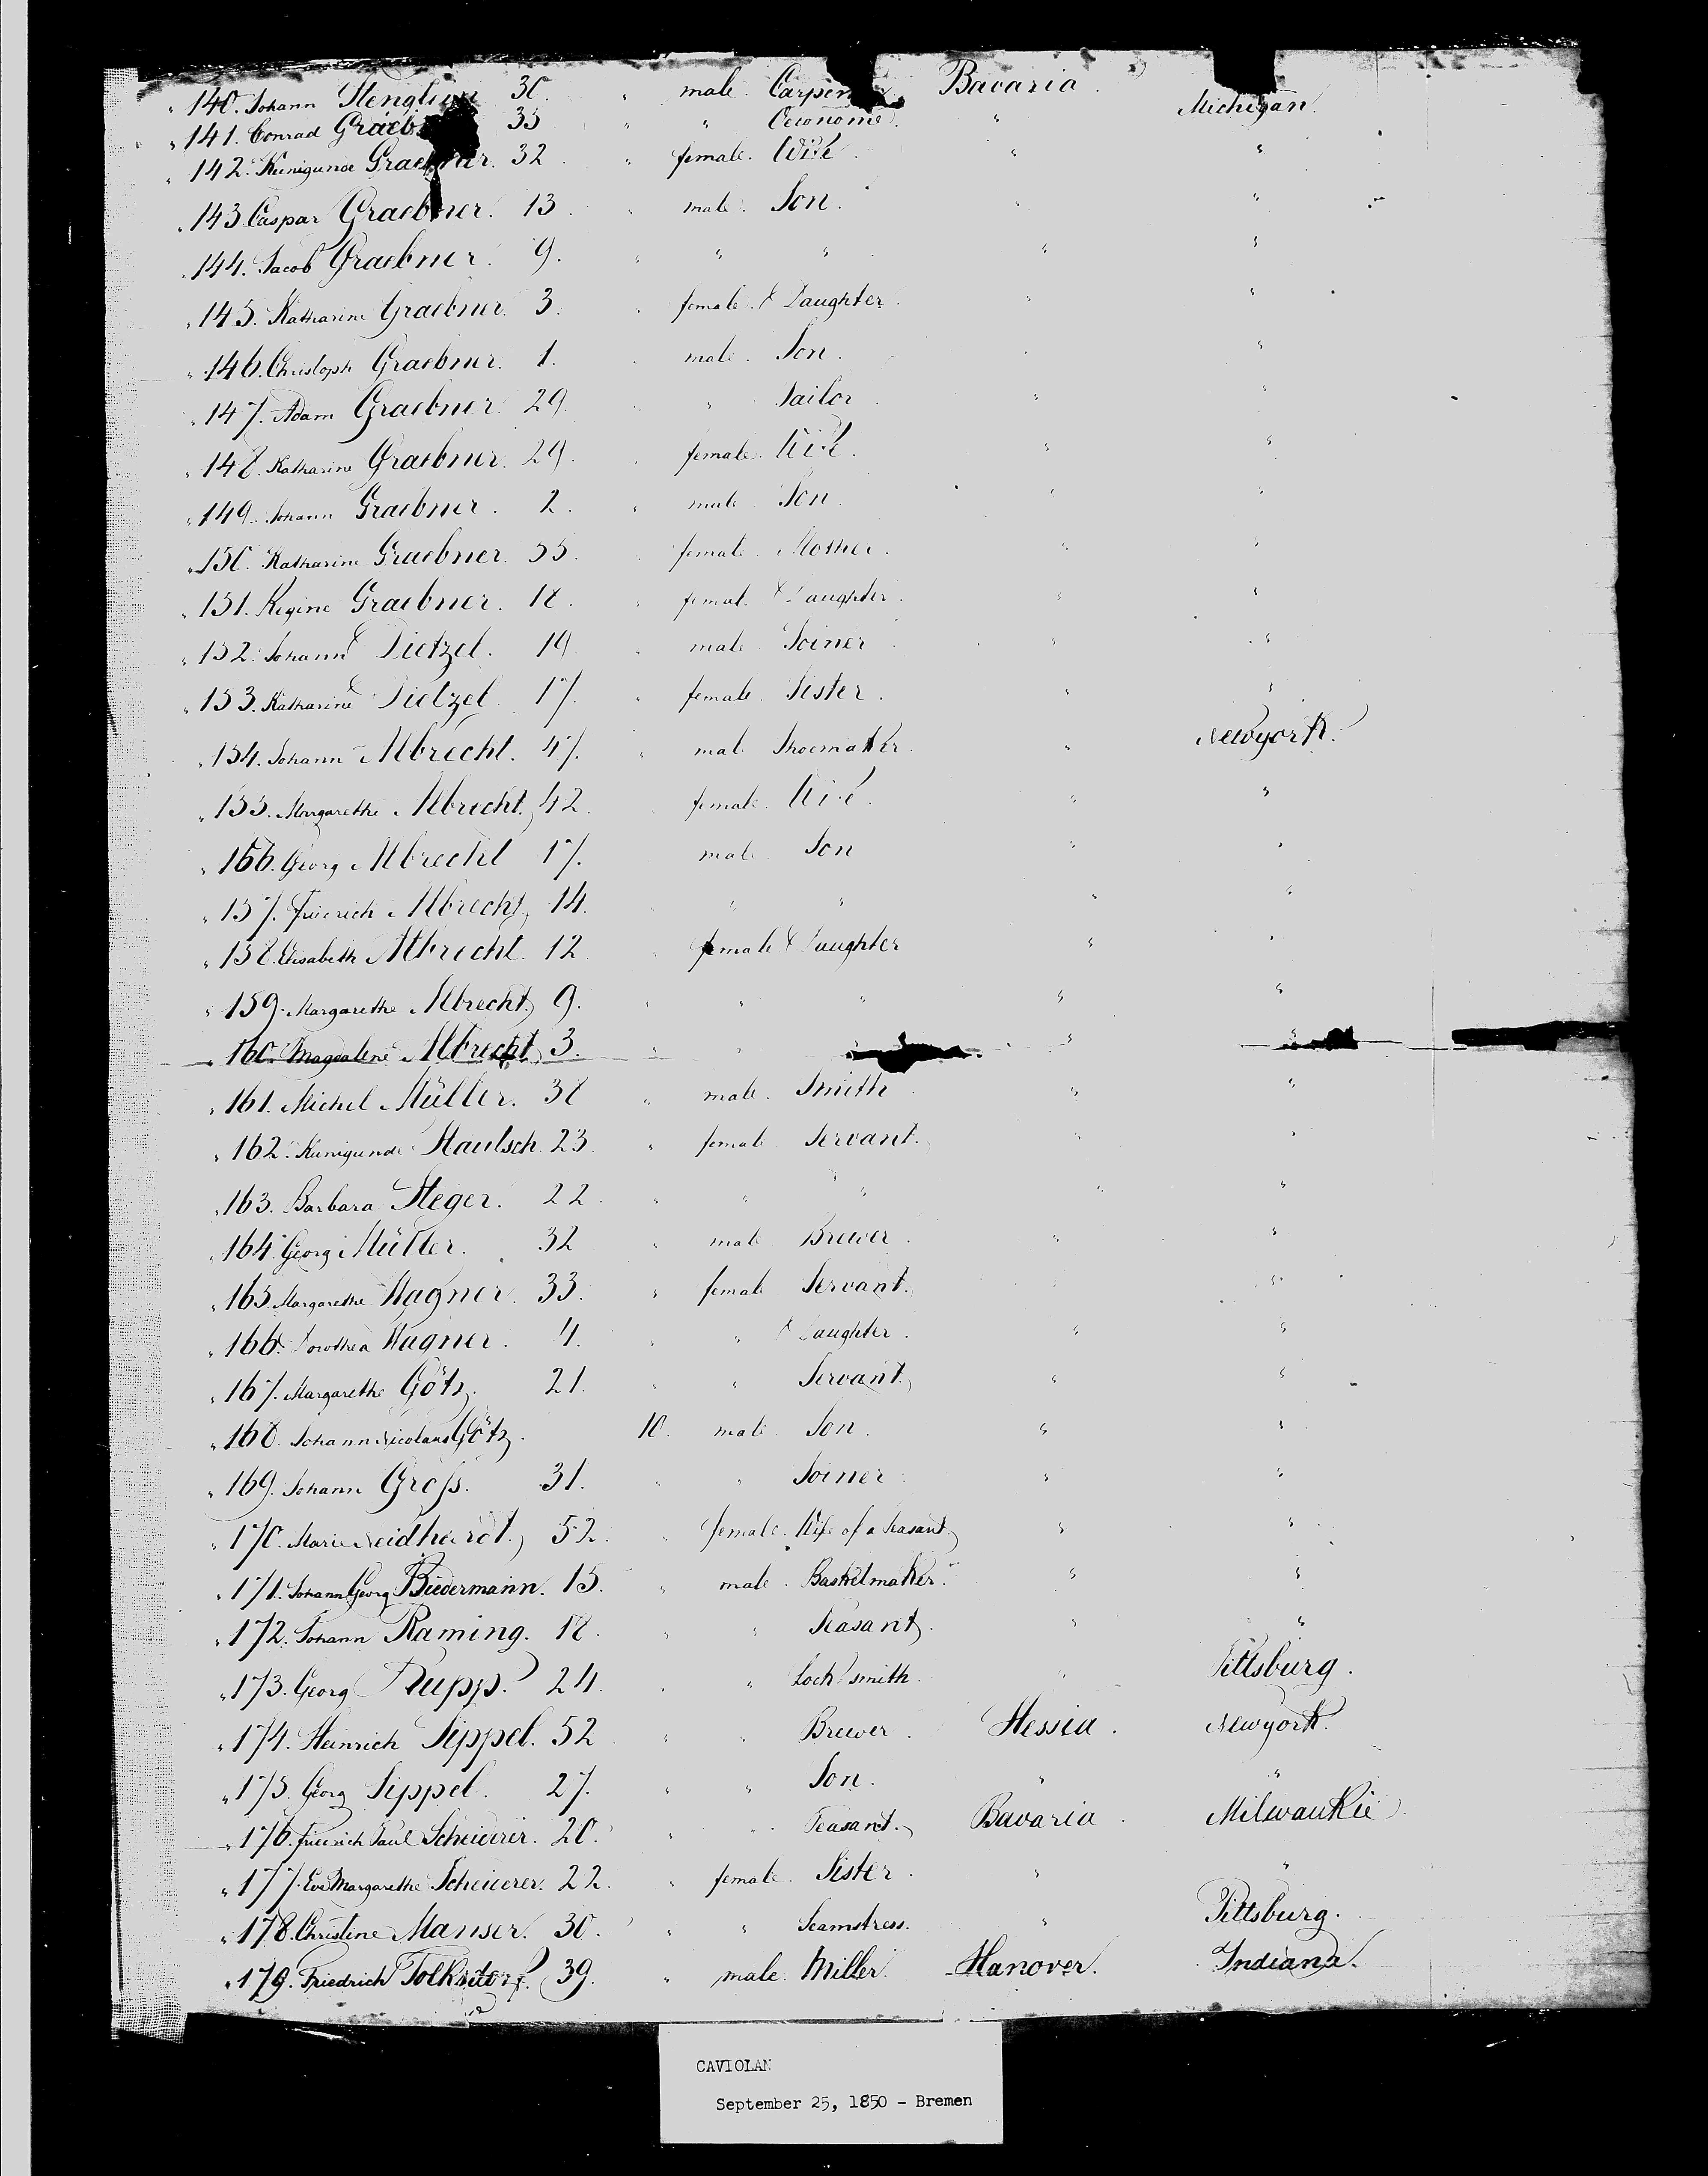 " 140. Johann 30. " male. Bavaria.
" 141. Conrad 35 " " Oeconome. " Michigan.
" 142. Kunigunde 32. " female. Wife. " "
" 143. Caspar Graebner. 13. " male. Son. " "
" 144. Jacob Graebner. 9. " " " " "
" 145. Katharine Graebner. 3. " female. Daughter. " "
" 146. Christoph Graebner. 1. " male. Son. " "
" 147. Adam Graebner. 29. " " Tailor. " "
" 148. Katharine Graebner. 29. " female. Wife. " "
" 149. Johann Graebner. 2. " male. Son. " "
" 150. Katharine Graebner. 55. " female. Mother. " "
" 151. Regine Graebner. 18. " female. Daughter. " "
" 152. Johann Dietzel. 19. " male. Joiner " "
" 153. Katharine Dietzel. 17. " female. Sister. " "
" 154. Johann Albrecht. 47. " male Shoemaker. " Newyork.
" 155. Margarethe Albrecht. 42. " female. Wife. " "
" 156. Georg Albrecht 17. " male. Son " "
" 157. Friedrich Albrecht, 14. " " " " "
" 158. Elisabeth Albrecht. 12. " female Daughter " "
" 159. Margarethe Albrecht, 9. " " " " "
" 160. Magdalene Albrecht, 3. " " " "
" 161. Michel Müller. 38 " male. Smith " "
" 162. Kunigunde Hautsch. 23. " female Servant. " "
" 163. Barbara Steger. 22. " " " " "
" 164. Georg Müller. 32 " male. Brewer. " "
" 165. Margarethe Wagner. 33. " female Servant. "
" 166. Dorothea Wagner. 4. " " Daughter. " "
" 167. Margarethe Götz. 21. " " Servant. " "
" 168. Johann Nicolaus Götz. 10. male Son. " "
" 169. Johann Groß. 31. " " Joiner. " "
" 170. Marie Neidhardt, 52. " female. Wife of a Peasant, " "
" 171. Johann Georg Biedermann. 15. " male. Basketmaker. " "
" 172. Johann Raming. 18. " " Peasant. " "
" 173. Georg Rupp. 24. " " Locksmith. " Pittsburg.
" 174. Heinrich Sippel. 52 " " Brewer. Hessia. Newyork.
" 175. Georg Sippel. 27. " " Son. " "
" 176. Friedrich Paul Scheuerer. 20. " " Peasant. Bavaria. Milwaukie.
" 177. Eva Margarethe Scheuerer. 22. " female. Sister. " "
" 178. Christine Manser. 30. " " Seamstress. " Pittsburg.
" 179. Friedrich 39. " male. Miller. Hanover. Indiana.
CAVIOLAN
September 25, 1850 - Bremen